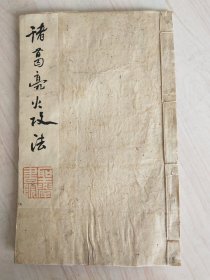 诸葛亮火攻法